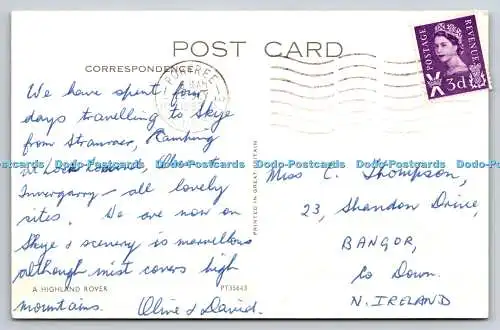 POST CARD
CORRESPONDENCE
PORTREE
POSTAGE
REVENUE
3d
We have spent four
days travelling to Skye
from Stranraer, Camping
at Loch Lomond,
Invergarry – all lovely
sites. We are now on
Skye & scenery is marvellous
although mist covers high
mountains. Olive & David.
A HIGHLAND ROVER
PT35643
PRINTED IN GREAT BRITAIN
Miss C. Thompson,
23, Shandon Drive,
BANGOR,
Co Down.
N. IRELAND
Dodo-Postcards Dodo-Postcards Dodo-Postcards Dodo-Postcards Dodo-Postcards Dodo-Postcards